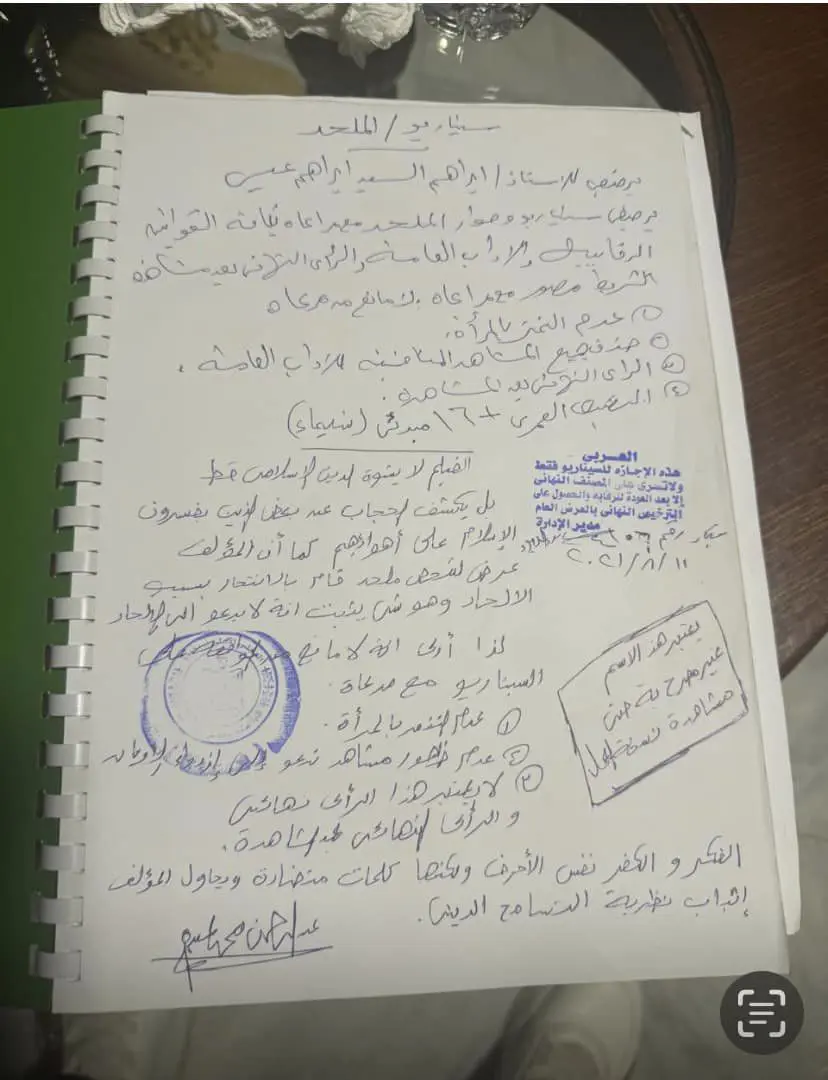 سيناريو / الملحد
يرخص للاستاذ / ابراهيم السيد ابراهيم عيسى
يرخص سيناريو وحوار الملحد مع مراعاه كافة القوانين
الرقابية والاداب العامة والرأى النهائى بعد مشاهده
الشريط مصور مع مراعاه لا مانع مراعاه
① عدم التنمر بالمرأة.
② حذف جميع المشاهد المنافية للاداب العامة.
③ الراى النهائى بعد المشاهدة.
④ التصنيف العمرى +١٦ مبدئى (شيماء)
الفيلم لا يشوة الدين الإسلامى قط
بل يكشف الحجاب عن بعض الذين يفسرون
الإسلام على أهوائهم كما أن المؤلف
عرض لشخص ملحد قام بالانتحار بسبب
الالحاد وهو شئ يثبت انة لا يدعو الى الإلحاد
لذا أرى انة لا مانع من الموافقة على
السيناريو مع مرعاة.
① عدم التنمر بالمرأة.
② عدم ظهور مشاهد تدعو إلى إزدراء الأديان
③ لا يعتبر هذا الرأى نهائى
و الرأى النهائى بعد المشاهدة.
الفكر و الكفر نفس الأحرف ولكنها كلمات متضادة ويحاول المؤلف
إثبات نظرية التسامح الدينى.
عبدالرحمن محمد
العربى
هذه الإجازه للسيناريو فقط
ولاتسرى على المصنف النهائى
إلا بعد العودة للرقابه والحصول على
الترخيص النهائى بالعرض العام
مدير الإدارة
رقم
٢٠٢١/٨/١١
يعتبر هذا الاسم
غير مصرح به حتى
مشاهدة نسخة العمل